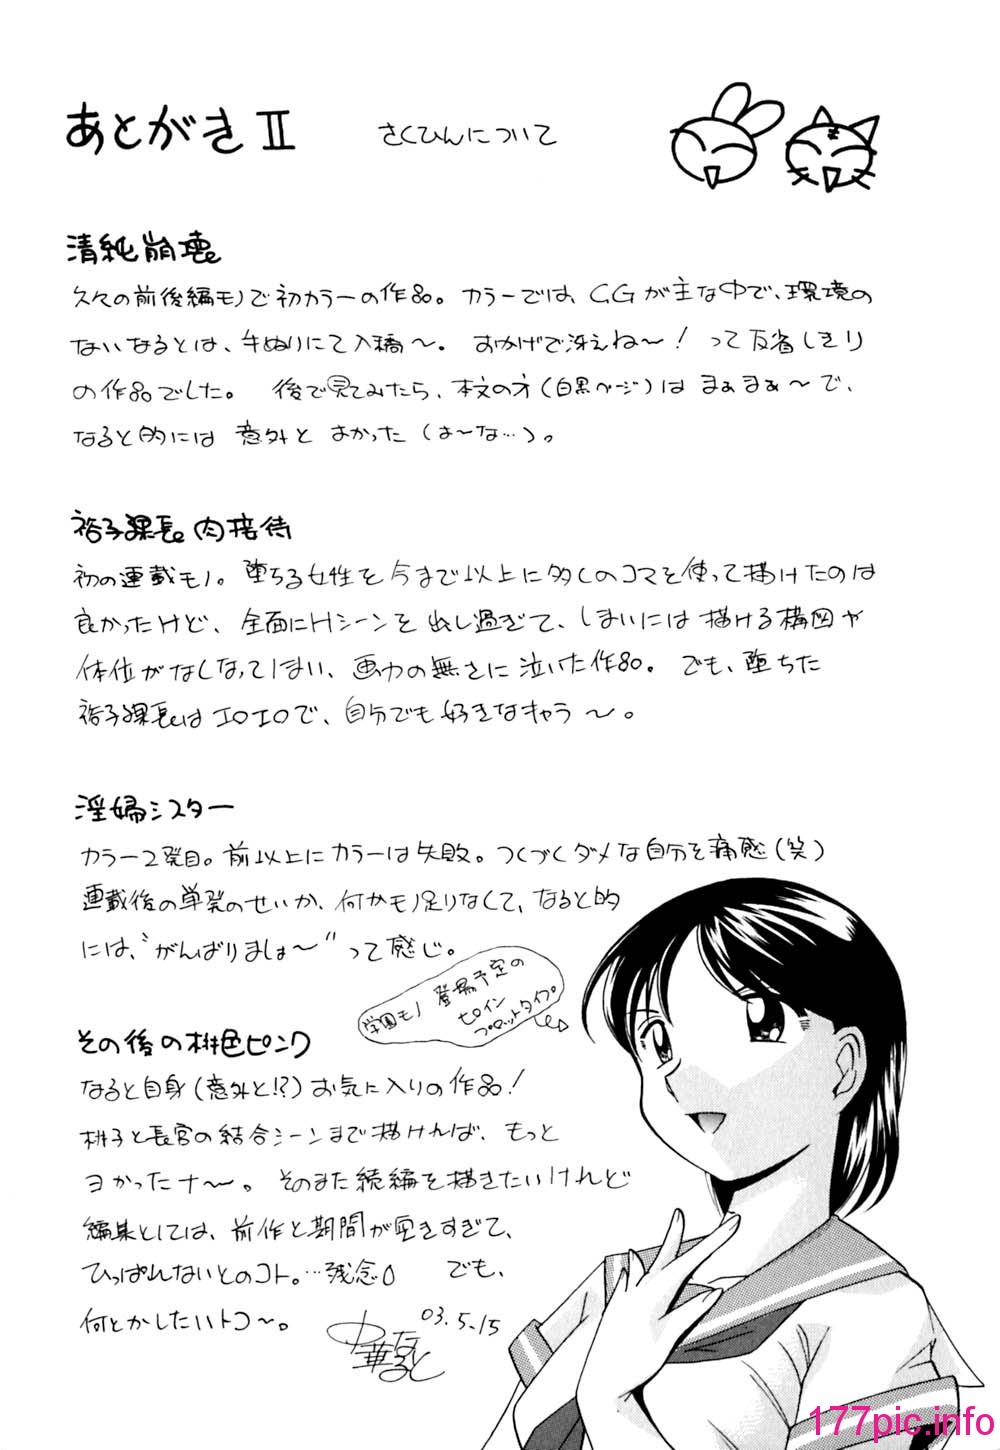 あとがきⅡ さくひんについて
清純崩壊。
久々の前後編モノで初カラーの作品。カラーでは、CGが主な中で、環境の
ないなるとは、手ぬりにて入稿〜。おかげで冴えね〜！って反省しきり
の作品でした。後で見てみたら、本文の方（白黒ページ）はまぁまぁ〜で、
なると的には意外とよかった（よ〜な…）。
裕子課長。肉接待
初の連載モノ。堕ちる女性を今まで以上に多くのコマを使って描けたのは
良かったけど、全面にHシーンを出し過ぎて、しまいには描ける構図や
体位がなくなってしまい、画力の無さに泣いた作品。でも、堕ちた
裕子課長はエロエロで、自分でも好きなキャラ〜。
淫婦シスター
カラー2発目。前以上にカラーは失敗。つくづくダメな自分を痛感（笑）
連載後の単発のせいか、何かモノ足りなくて、なると的
には、“がんばりましょ〜”って感じ。
学園モノ登場予定の
ヒロイン
プロットタイプ。
その後の桃色ピンク
なると自身（意外と!?）お気に入りの作品！
桃子と長官の結合シーンまで描ければ、もっと
ヨかったナ〜。そのまた続編を描きたいけれど
編集としては、前作と期間が空きすぎて、
ひっぱれないとのコト。…残念。でも、
何とかしたいトコ〜。
中華なると
03.5.15
177pic.info